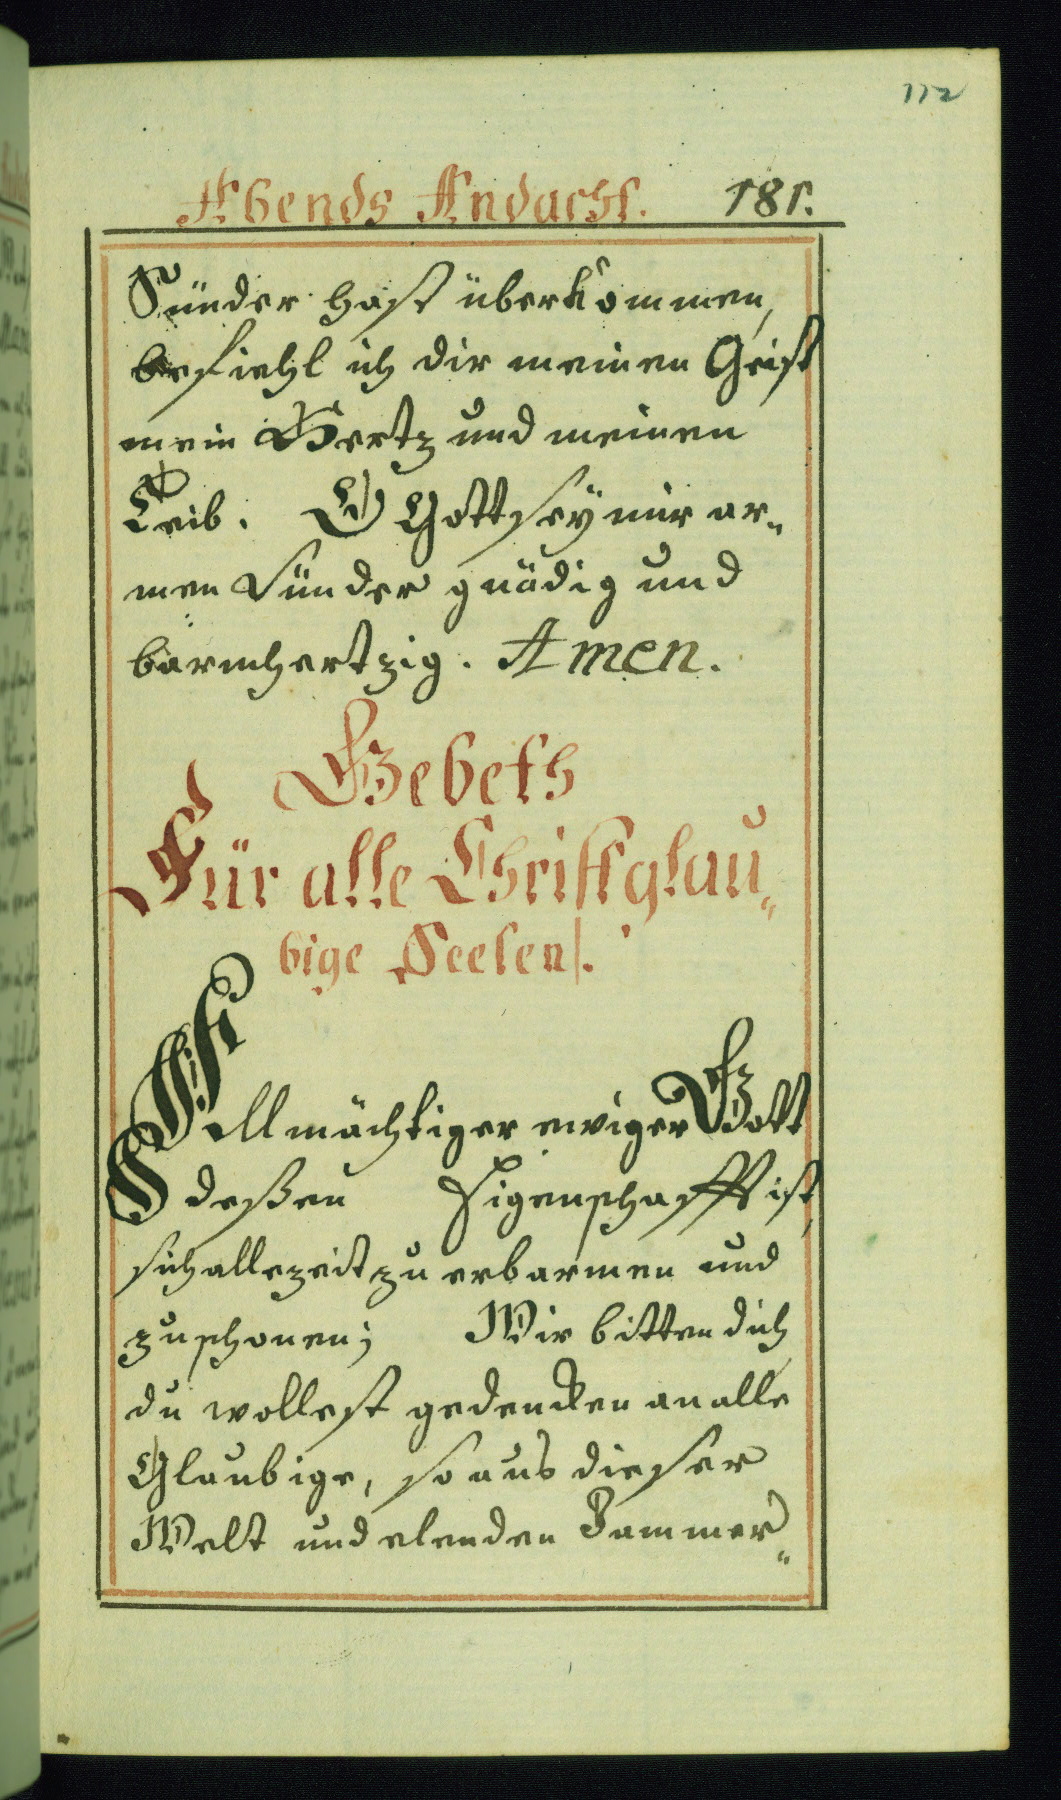 112
Abends Andacht. 181.
Sünder hast überkommen,
befiehl ich dir meinen Geist
mein Hertz und meinen
Leib. O Gott seÿ mir ar„
men Sünder gnädig und
barmhertzig. Amen.
Gebeth
Für alle Christglau„
bige Seelen.
Allmächtiger ewiger Gott
deßen Eigenschafft ist,
sich allezeit zu erbarmen und
zu schonen; Wir bitten dich
du wollest gedencken an alle
Glaubige, so aus dieser
Welt und elenden Jammer„